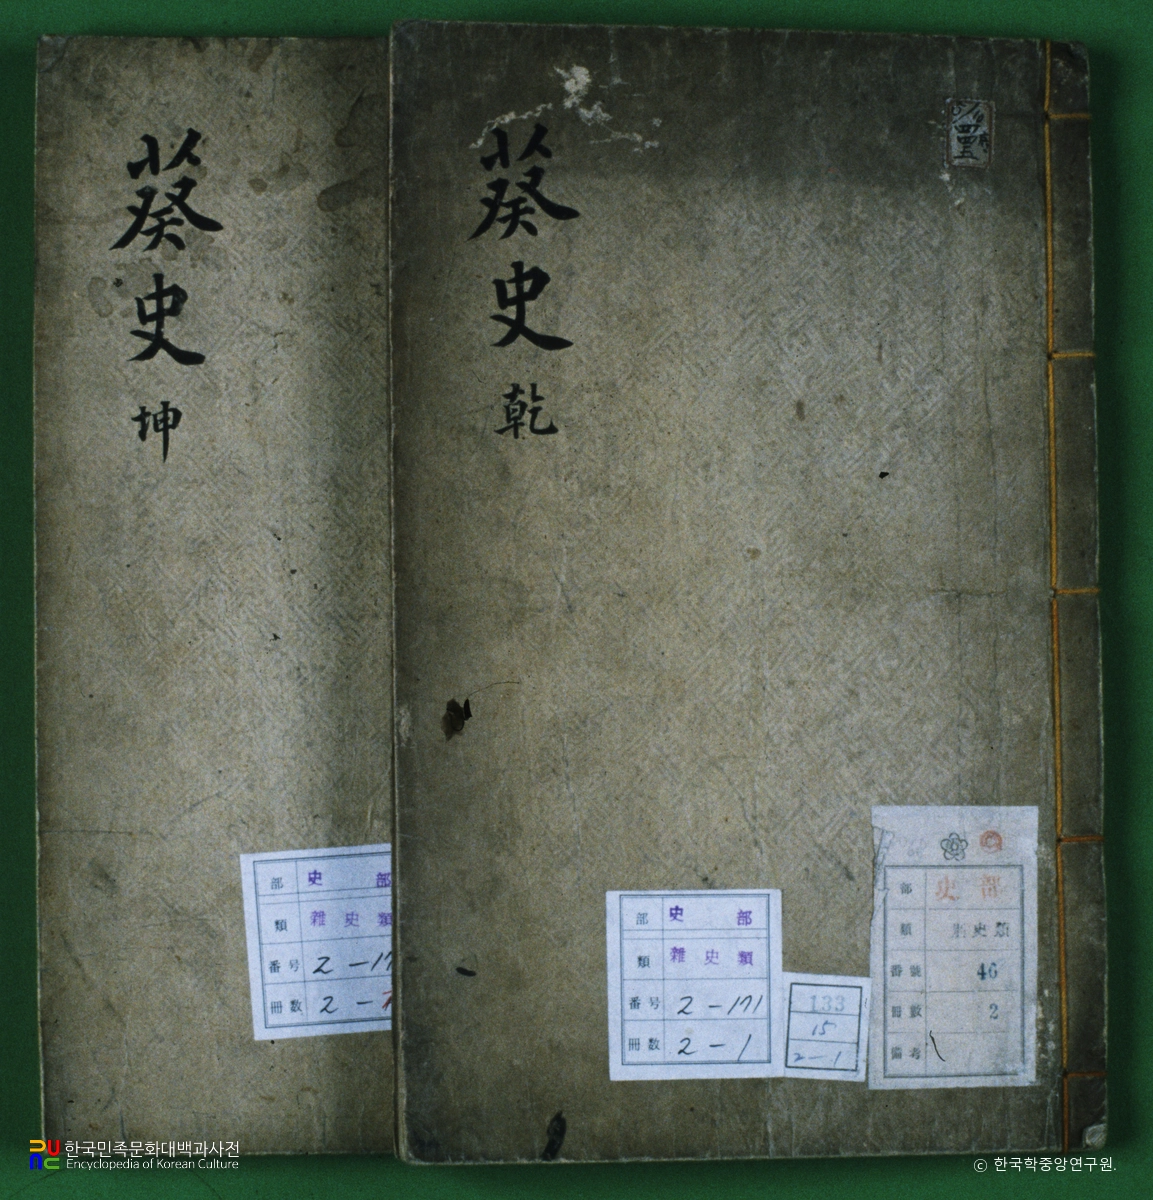 葵史 乾
葵史 坤
四四五
部 史 部
類 雜史類
番号 2-171
冊数 2-1
133
15
2-1
部 史 部
類 史類
番號 46
冊數 2
備考
部 史 部
類 雜史類
番号 2-17
冊数 2-
한국민족문화대백과사전
Encyclopedia of Korean Culture
ⓒ 한국학중앙연구원.